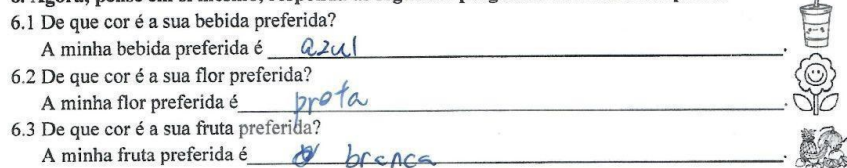 6.1 De que cor é a sua bebida preferida?
A minha bebida preferida é azul.
6.2 De que cor é a sua flor preferida?
A minha flor preferida é preta.
6.3 De que cor é a sua fruta preferida?
A minha fruta preferida é branca.